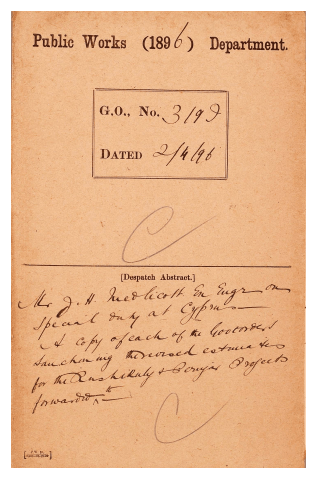 Public Works (1896) Department.
G.O., No. 319
DATED 2/4/96
[Despatch Abstract.]
Mr J. H. Medlicott Ex Engr on
Special duty at Cyprus
A copy of each of the Gov. orders
sanctioning the revised estimates
for the Rushikulya & Periyar Projects
forwarded to